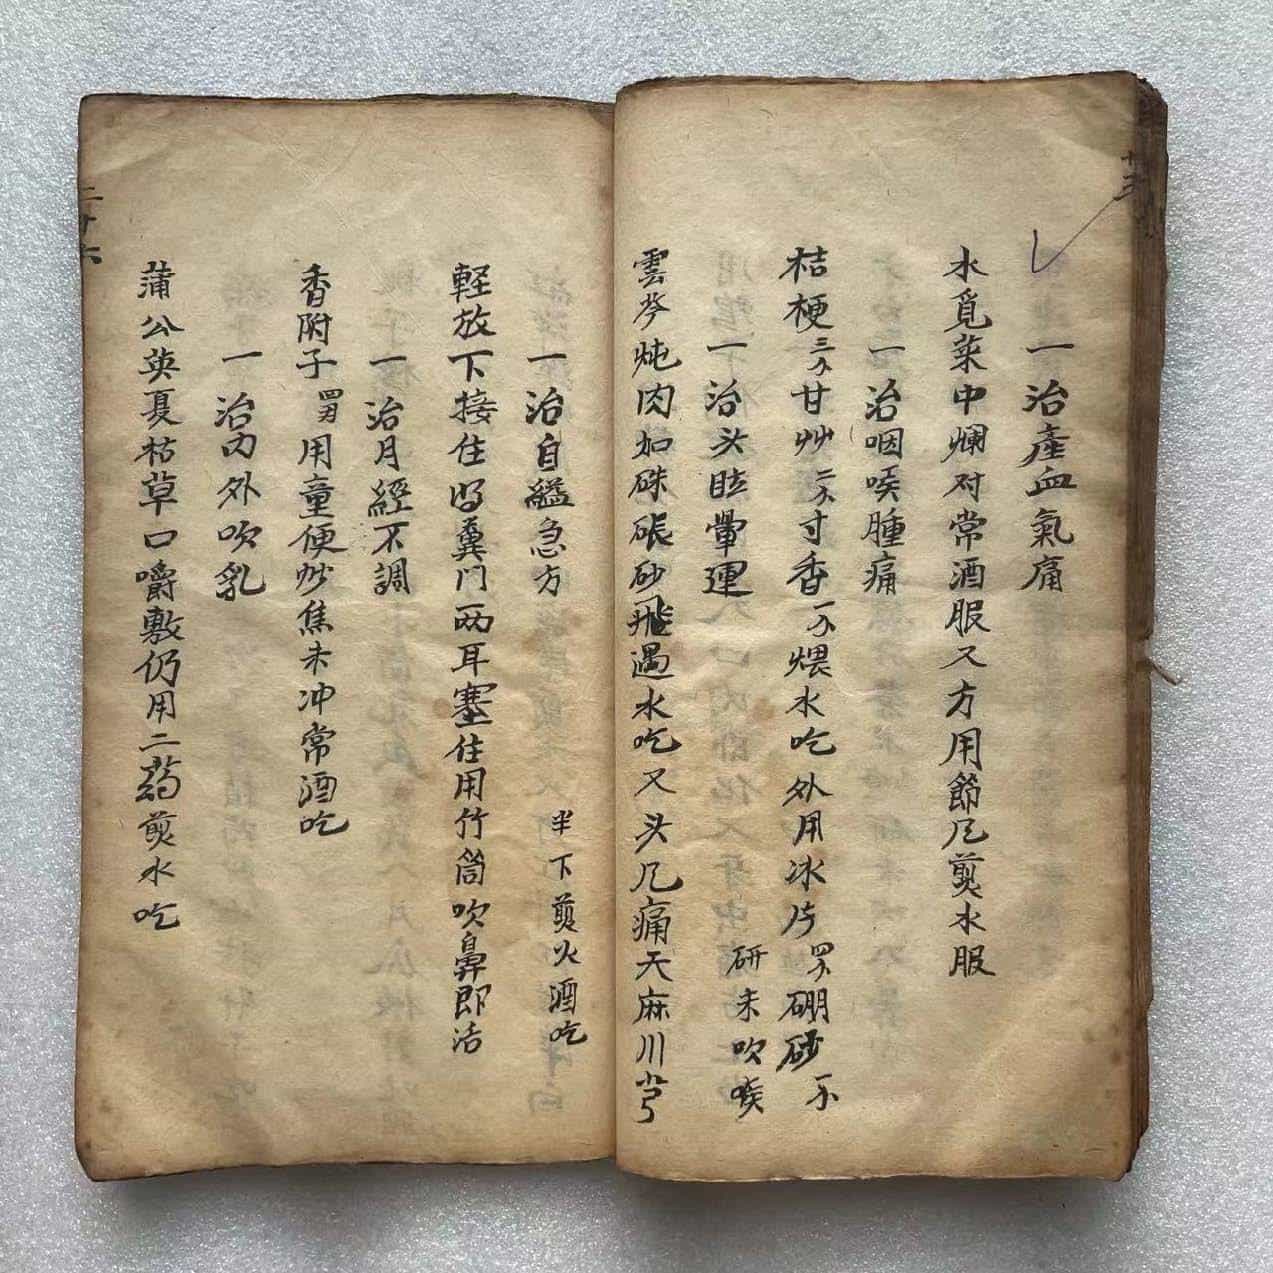 一治產血氣痛
水覓菜中爛对常酒服又方用節凡煎水服
一治咽喉腫痛
桔梗三分甘艸二分寸香一分煨水吃外用冰片四分硼砂一分
研末吹喉
一治头眩暈運
雲苓炖肉如硃砂飛過水吃又头凡痛天麻川芎
半下煎火酒吃
一治自縊急方
軽放下接住以糞门両耳塞住用竹筒吹鼻即活
一治月經不調
香附子四用童便炒焦末冲常酒吃
一治内外吹乳
蒲公英夏枯草口嚼敷仍用二药煎水吃
二十六